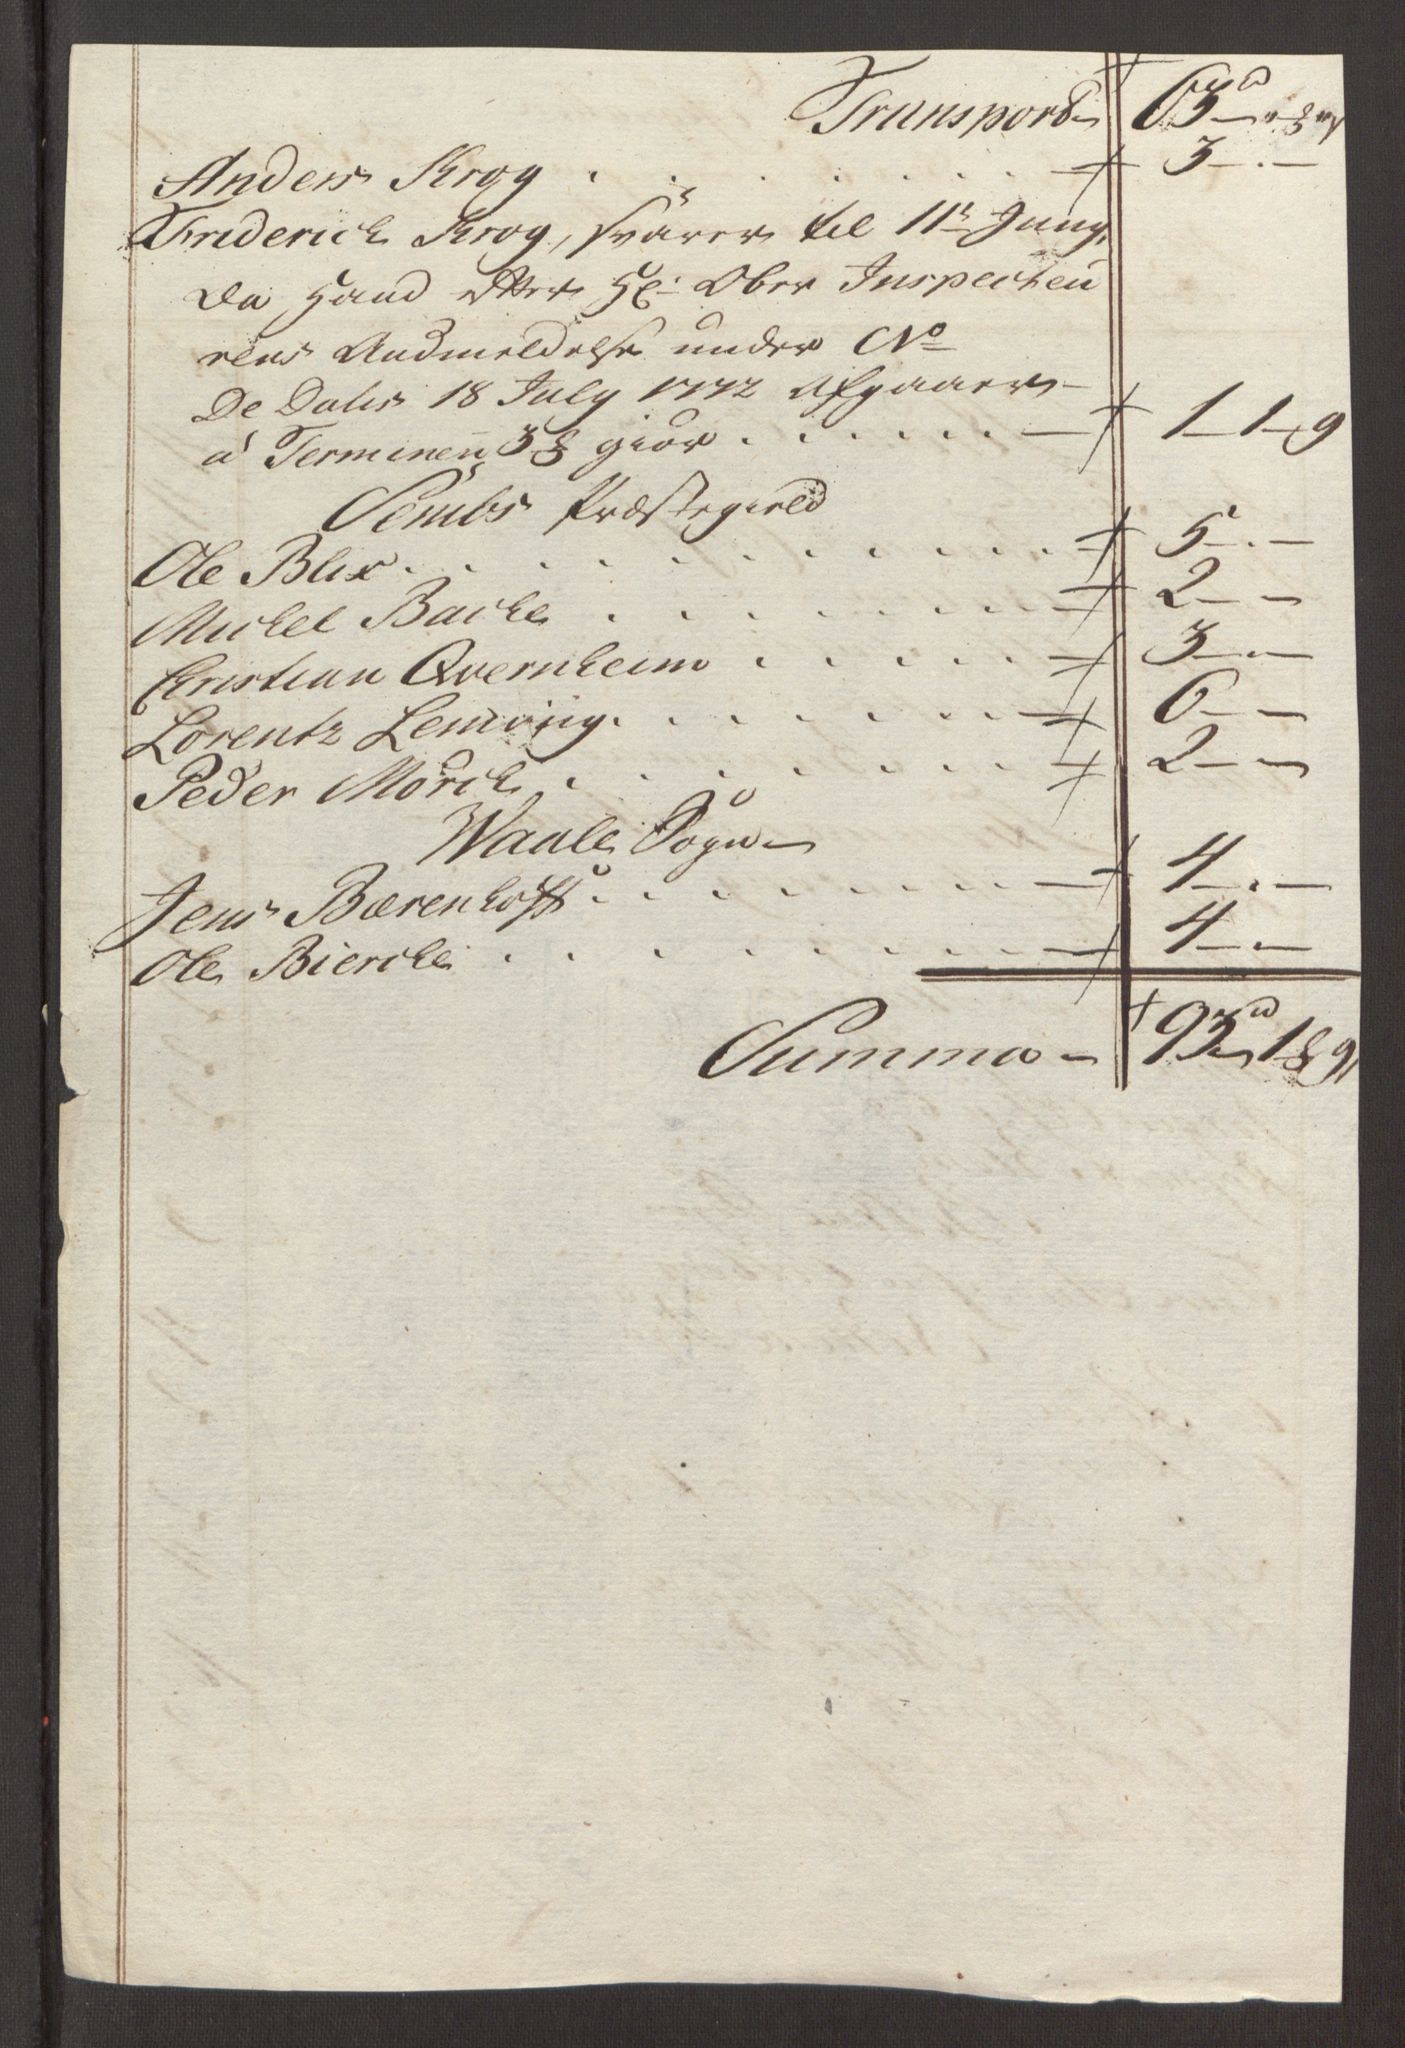 Transport 63 rd - ß -
Anders Krog . . . . . . . 3 - . -
Friderich Krog, svarer til 11te Juny,
da hand efter Hr: Ober Inspecteu
rens Andmeldelse under No
De Dato 18 July 1772 afgaaer
á Terminen 3 ß giør . . . . . . 1 - 1 - 9
Sembs Præstegield
Ole Blix . . . . . . . . . 5 - . -
Michel Backe . . . . . . . 2 - -
Christian Qvernheim . . . . . 3 - . -
Lorentz Lemvig . . . . . . 6 - -
Peder Mörch . . . . . . . 2 - -
Waale Sogn
Jens Bærenhofft . . . . . . . 4 - . -
Ole Biercke . . . . . . . 4 - . -
Summa 93 rd 1 ß 9